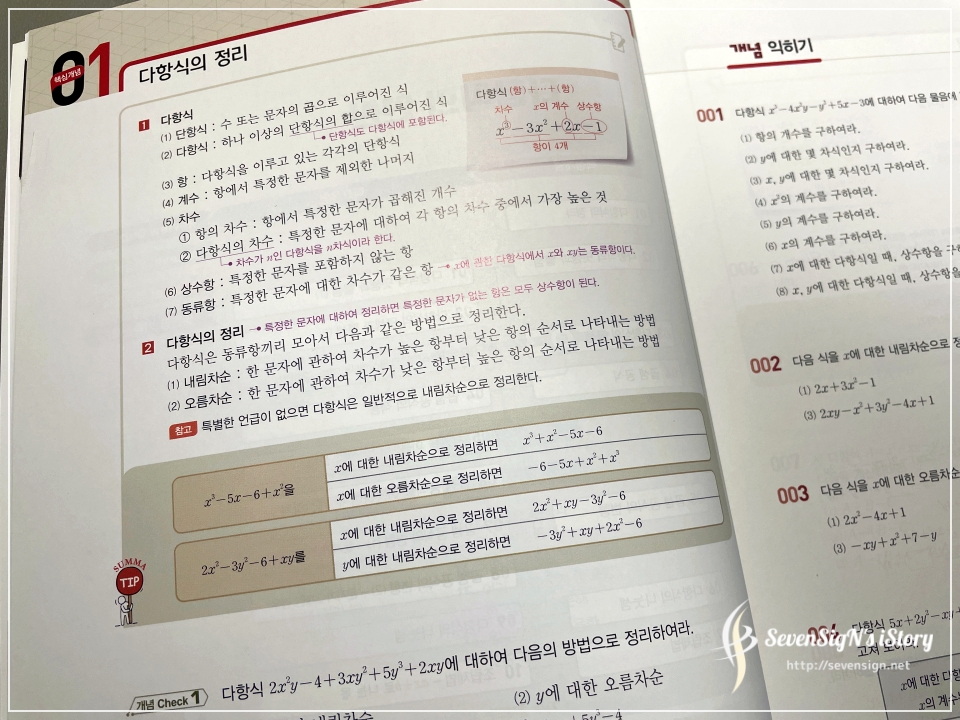 핵심개념
01
다항식의 정리
1 다항식
(1) 단항식 : 수 또는 문자의 곱으로 이루어진 식
(2) 다항식 : 하나 이상의 단항식의 합으로 이루어진 식
단항식도 다항식에 포함된다.
(3) 항 : 다항식을 이루고 있는 각각의 단항식
(4) 계수 : 항에서 특정한 문자를 제외한 나머지
(5) 차수
① 항의 차수 : 항에서 특정한 문자가 곱해진 개수
② 다항식의 차수 : 특정한 문자에 대하여 각 항의 차수 중에서 가장 높은 것
차수가 n인 다항식을 n차식이라 한다.
(6) 상수항 : 특정한 문자를 포함하지 않는 항
(7) 동류항 : 특정한 문자에 대한 차수가 같은 항 x에 관한 다항식에서 x와 xy는 동류항이다.
다항식 (항)+⋯+(항)
차수 x의 계수 상수항
x³-3x²+2x-1
항이 4개
2 다항식의 정리 특정한 문자에 대하여 정리하면 특정한 문자가 없는 항은 모두 상수항이 된다.
다항식은 동류항끼리 모아서 다음과 같은 방법으로 정리한다.
(1) 내림차순 : 한 문자에 관하여 차수가 높은 항부터 낮은 항의 순서로 나타내는 방법
(2) 오름차순 : 한 문자에 관하여 차수가 낮은 항부터 높은 항의 순서로 나타내는 방법
참고 특별한 언급이 없으면 다항식은 일반적으로 내림차순으로 정리한다.
x³-5x-6+x²을
x에 대한 내림차순으로 정리하면 x³+x²-5x-6
x에 대한 오름차순으로 정리하면 -6-5x+x²+x³
2x²-3y²-6+xy를
x에 대한 내림차순으로 정리하면 2x²+xy-3y²-6
y에 대한 내림차순으로 정리하면 -3y²+xy+2x²-6
SUMMA
TIP
개념 Check 1 다항식 2x²y-4+3xy²+5y³+2xy에 대하여 다음의 방법으로 정리하여라.
내림차순
(2) y에 대한 오름차순
개념 익히기
001 다항식 에 대하여 다음 물음에
(1) 항의 개수를 구하여라.
(2) y에 대한 몇 차식인지 구하여라.
(3) x, y에 대한 몇 차식인지 구하여라.
(4) x²의 계수를 구하여라.
(5) y의 계수를 구하여라.
(6) x의 계수를 구하여라.
(7) x에 대한 다항식일 때, 상수항을
(8) x, y에 대한 다항식일 때, 상수항을
002 다음 식을 x에 대한 내림차순으로
(1) 2x+3x²-1
(3) 2xy-x²+3y²-4x+1
003 다음 식을 x에 대한 오름차순
(1) 2x²-4x+1
(3) -xy+x²+7-y
004 다항식 5x+2y²
x에 대한
x의 계수
SevenSigN's iStory
http://sevensign.net